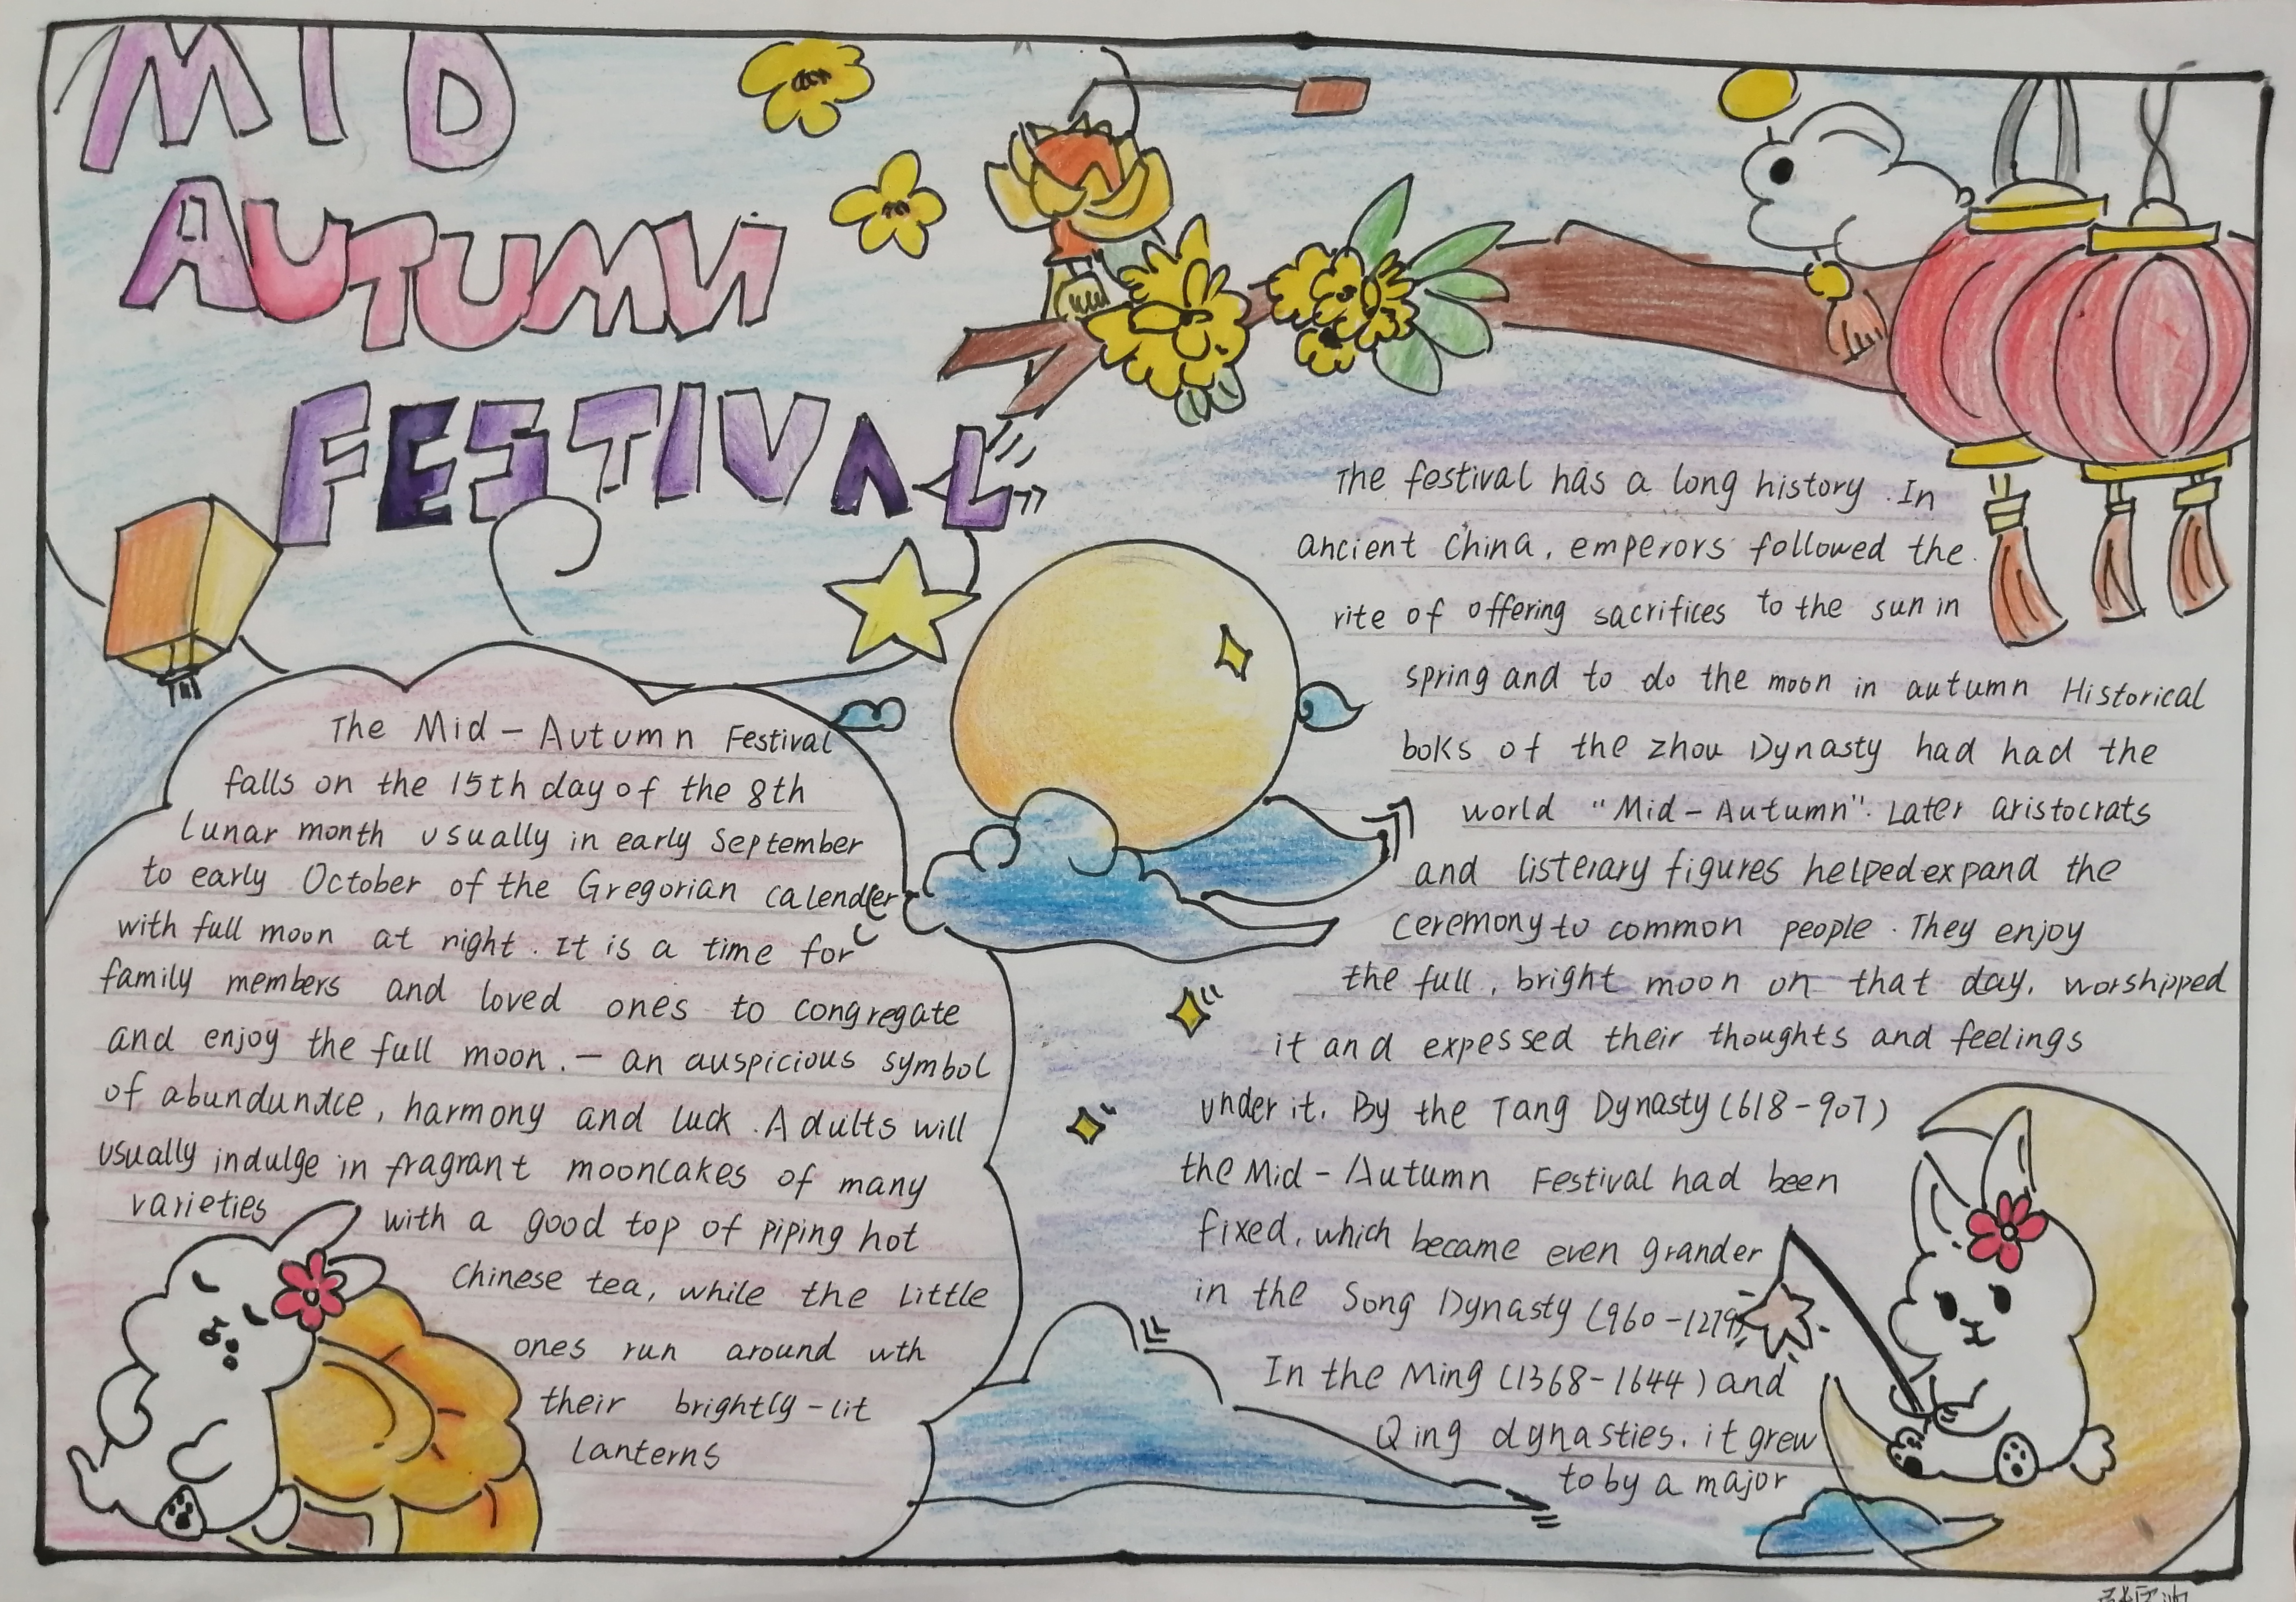 MID
AUTUMN
FESTIVAL
The Mid-Autumn Festival
falls on the 15th day of the 8th
Lunar month usually in early September
to early October of the Gregorian calender
with full moon at night. It is a time for
family members and loved ones to congregate
and enjoy the full moon. — an auspicious symbol
of harmony and luck. Adults will
usually indulge in fragrant mooncakes of many
varieties with a good top of piping hot
Chinese tea, while the little
ones run around wth
their brightly-lit
lanterns
The festival has a long history. In
ancient China, emperors followed the
rite of offering sacrifices to the sun in
spring and to do the moon in autumn Historical
boks of the Zhou Dynasty had had the
world "Mid-Autumn". Later aristocrats
and listerary figures helped expand the
ceremony to common people. They enjoy
the full, bright moon on that day, worshipped
it and expessed their thoughts and feelings
under it. By the Tang Dynasty (618-907)
the Mid-Autumn Festival had been
fixed, which became even grander
in the Song Dynasty (960-1279)
In the Ming (1368-1644) and
Qing dynasties, it grew
to by a major